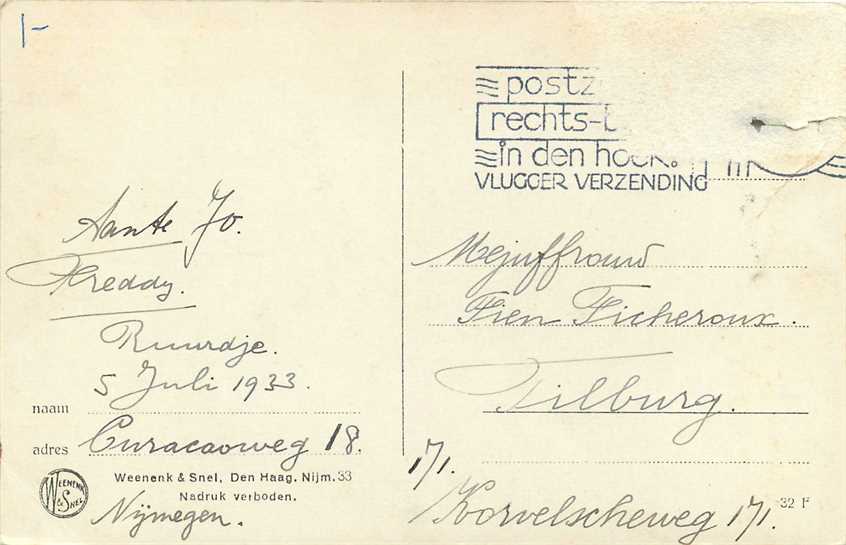 1-
postz
rechts-b
in den hoek.
VLUGGER VERZENDING
Aante Jo.
Freddy.
Ruurdje.
5 Juli 1933.
naam
adres Curacaoweg 18.
Weenenk & Snel, Den Haag. Nijm. 33
Nadruk verboden.
WEENENK & SNEL
Nijmegen.
Mejuffrouw
Fien Ficheroux.
Tilburg.
171.
32 F
Korvelscheweg 171.